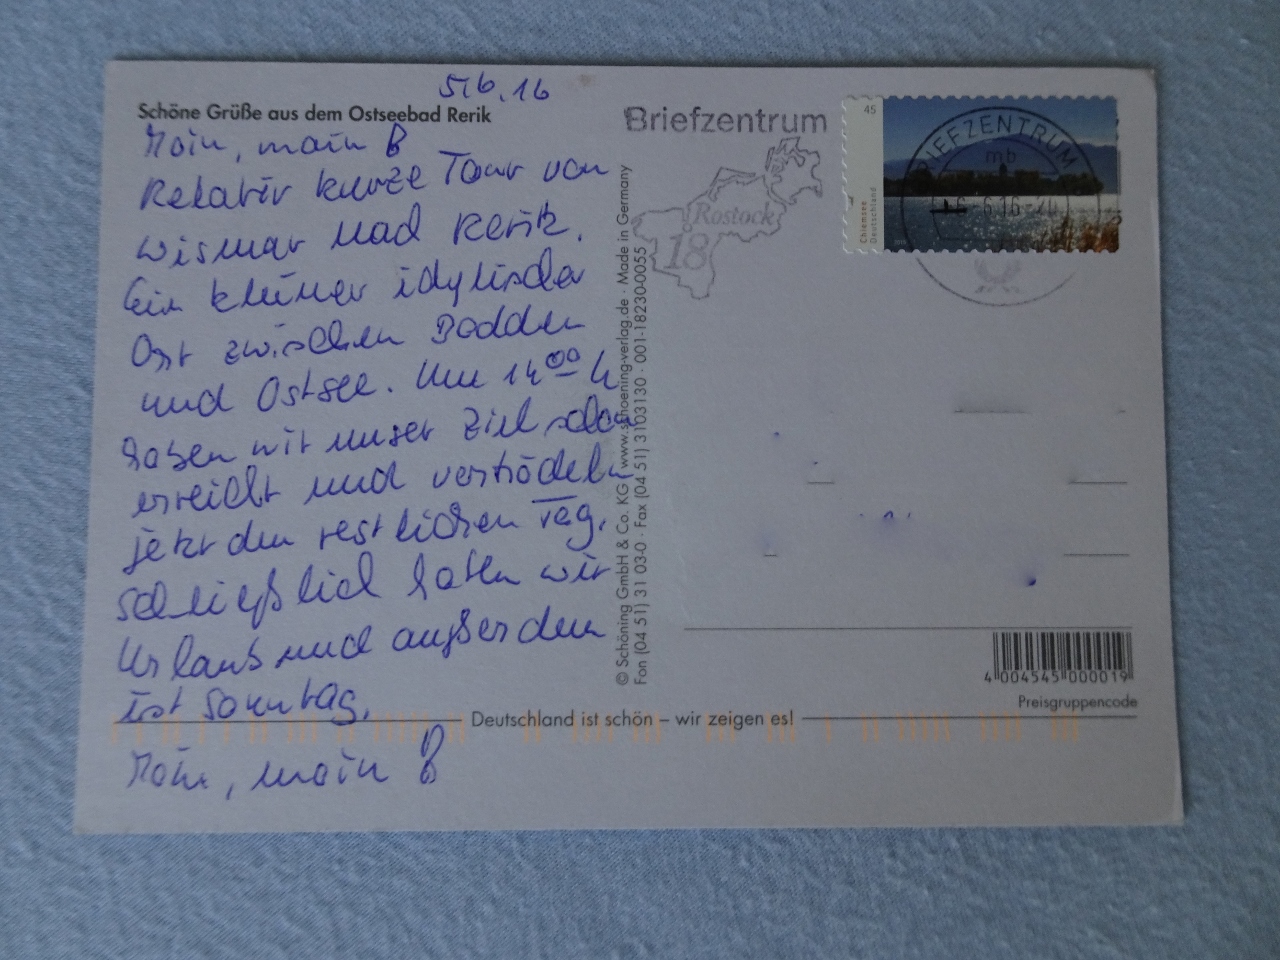 5.6.16
Schöne Grüße aus dem Ostseebad Rerik
Moin, moin B
Relativ kurze Tour von
Wismar nad Rerik.
Ein kleiner idylischer
Ort zwischen Bodden
und Ostsee. Um 14⁰⁰ h
haben wir unser Ziel schon
erreicht und vertrödeln
jetzt den restlichen Tag.
Schließlich haben wir
Urlaub und außerdem
ist Sonntag.
Moin, moin B
Deutschland ist schön – wir zeigen es!
© Schöning GmbH & Co. KG www.schoening-verlag.de · Made in Germany
Fon (04 51) 31 03-0 · Fax (04 51) 3103130 · 001-18230-0055
Briefzentrum
Rostock
18
45
Chiemsee
Deutschland
BRIEFZENTRUM
mb
4 004545 000019
Preisgruppencode